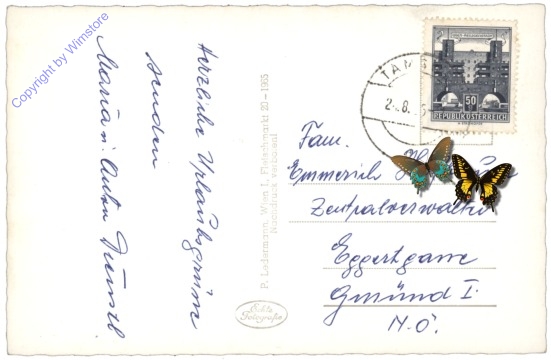 Copyright by Wimstore
Herzliche Urlaubsgrüsse
senden
Maria u. Anton
P. Ledermann, Wien I., Fleischmarkt 20 - 1965
Nachdruck verboten!
Echte
Fotografie
TAM
50
REPUBLIK ÖSTERREICH
Fam.
Emmerich
Zentralverwalter
Eggertgasse
Gmünd I.
N.Ö.